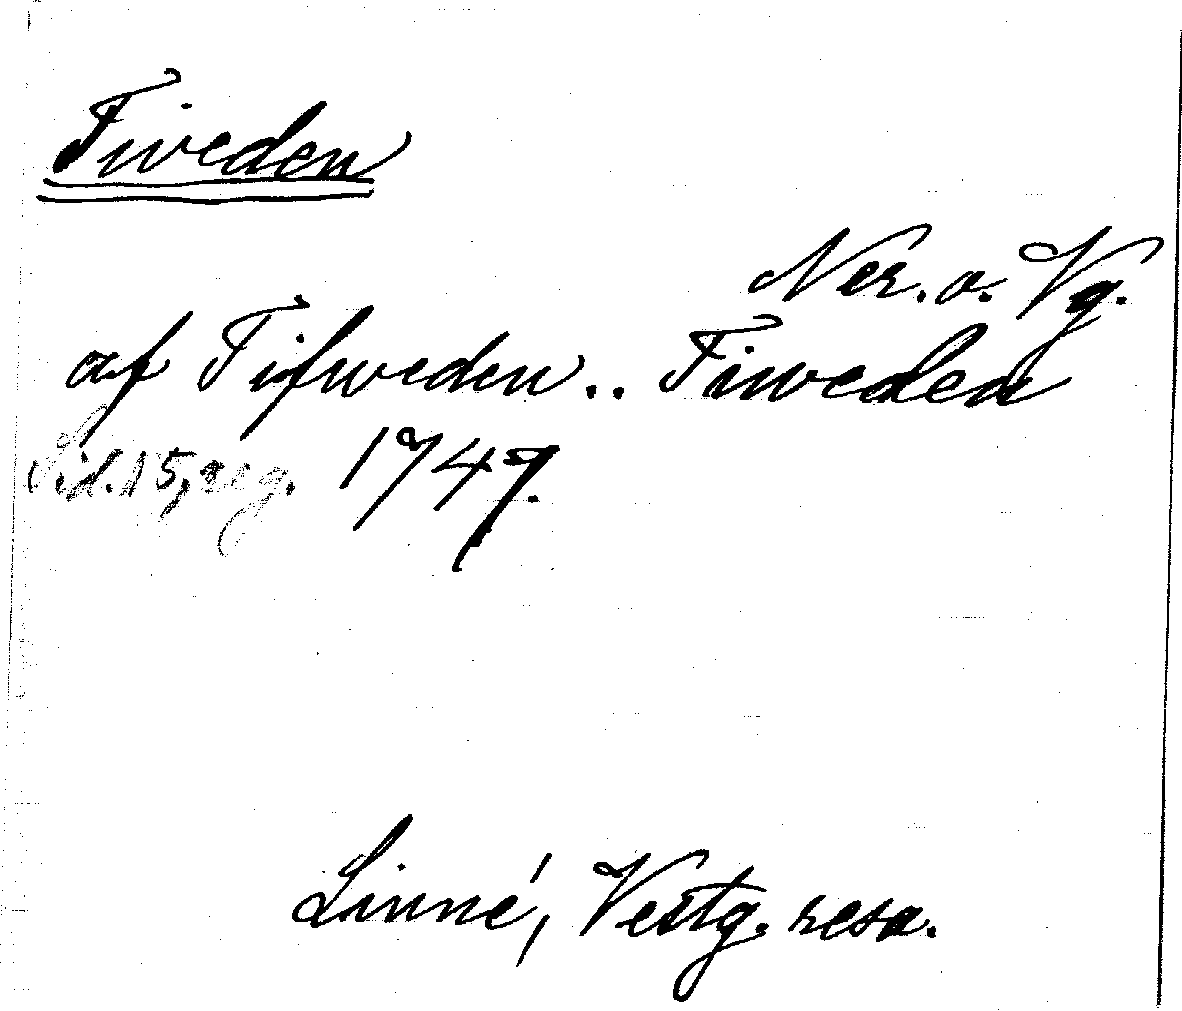 Tiveden
Ner. o. Vg.
af Tifweden .. Tiweden
Sid. 15, reg. 1747.
Linné, Vestg. resa.